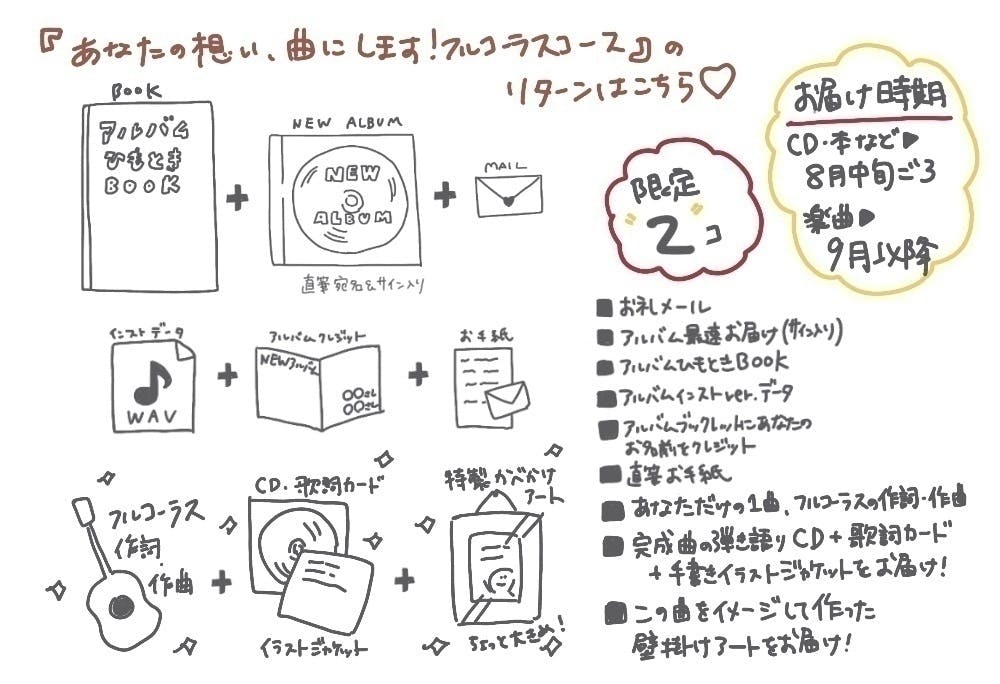 『あなたの想い、曲にします！フルコーラスコース』の
リターンはこちら♡
BOOK
アルバム
ひもとき
BOOK
+
NEW ALBUM
NEW
ALBUM
直筆宛名&サイン入り
+
MAIL
限定
2コ
お届け時期
CD・本など▶
8月中旬ごろ
楽曲▶
9月以降
インストデータ
WAV
+
アルバムクレジット
NEWアルバム
〇〇さん
〇〇さん
+
お手紙
フルコーラス
作詞・
作曲
+
CD・歌詞カード
イラストジャケット
+
特製かべかけ
アート
ちょっと大きめ！
■お礼メール
■アルバム最速お届け(サイン入り)
■アルバムひもときBOOK
■アルバムインストver.データ
■アルバムブックレットにあなたの
お名前をクレジット
■直筆お手紙
■あなただけの1曲、フルコーラスの作詞・作曲
■完成曲の弾き語りCD+歌詞カード
+手書きイラストジャケットをお届け！
■この曲をイメージして作った
壁掛けアートをお届け！